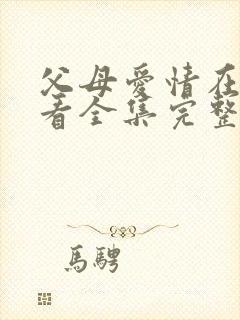 父母爱情在
看全集完整
馬騁